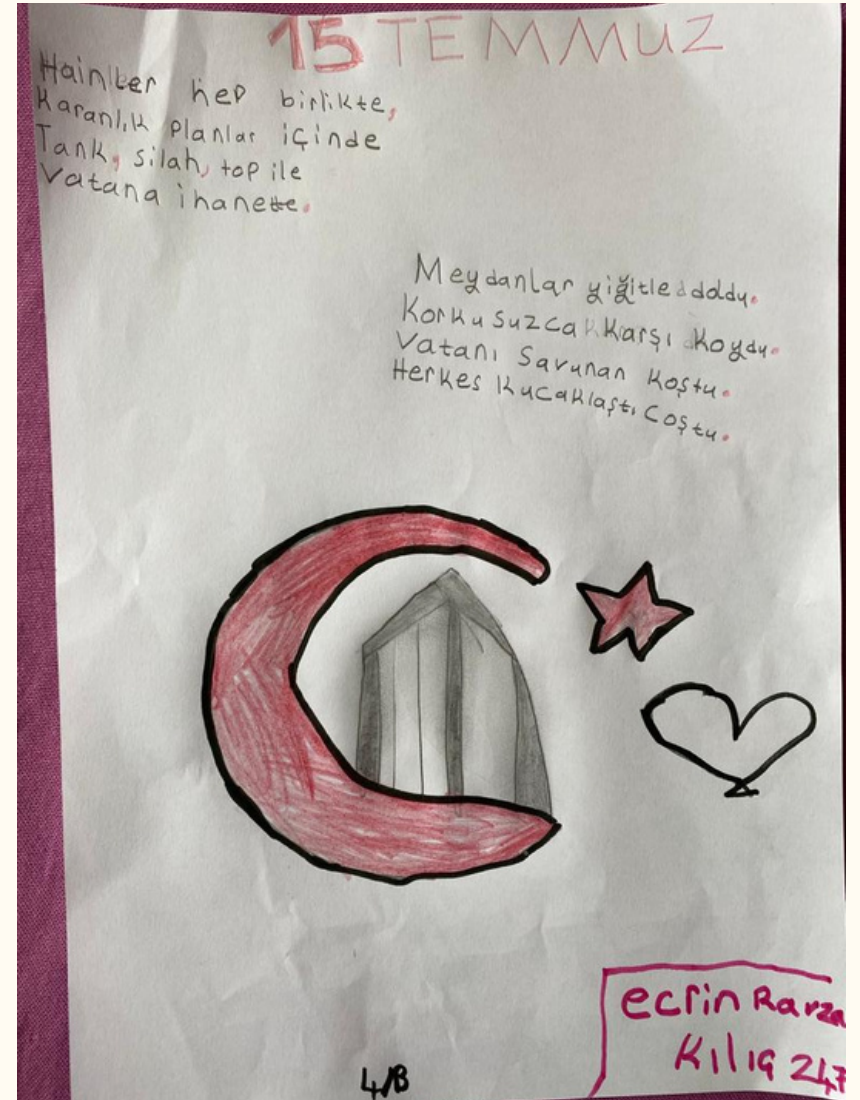 15 TEMMUZ
Hainler hep birlikte,
Karanlık planlar içinde
Tank, silah, top ile
Vatana ihanette.
Meydanlar yiğitle doldu.
Korkusuzca karşı koydu.
Vatanı Savunan koştu.
Herkes kucaklaştı coştu.
ecrin
247
4/B